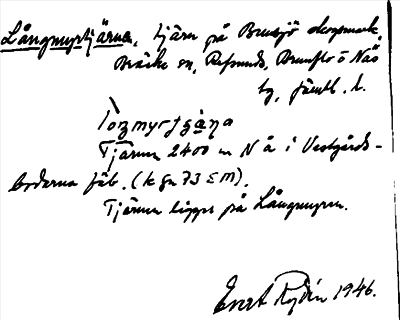 Långmyrtjärnen, tjärn på Brunsjö skogsmark,
Bräcke sn, Refsunds, Brunflo o Näs
tg, Jämtl. l.
Tjärnen 2400 m N å i Västgårds-
bodarna fäb. (k gn 73 S m).
Tjärnen ligger på Långmyren.
Evert Rydén 1946.